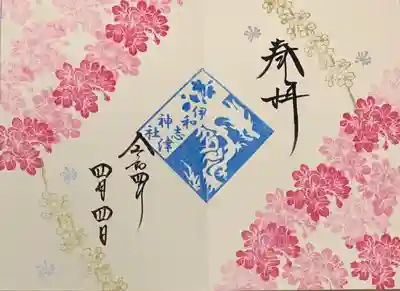 奉拝
伊和
志津
神社
令和四年
四月四日